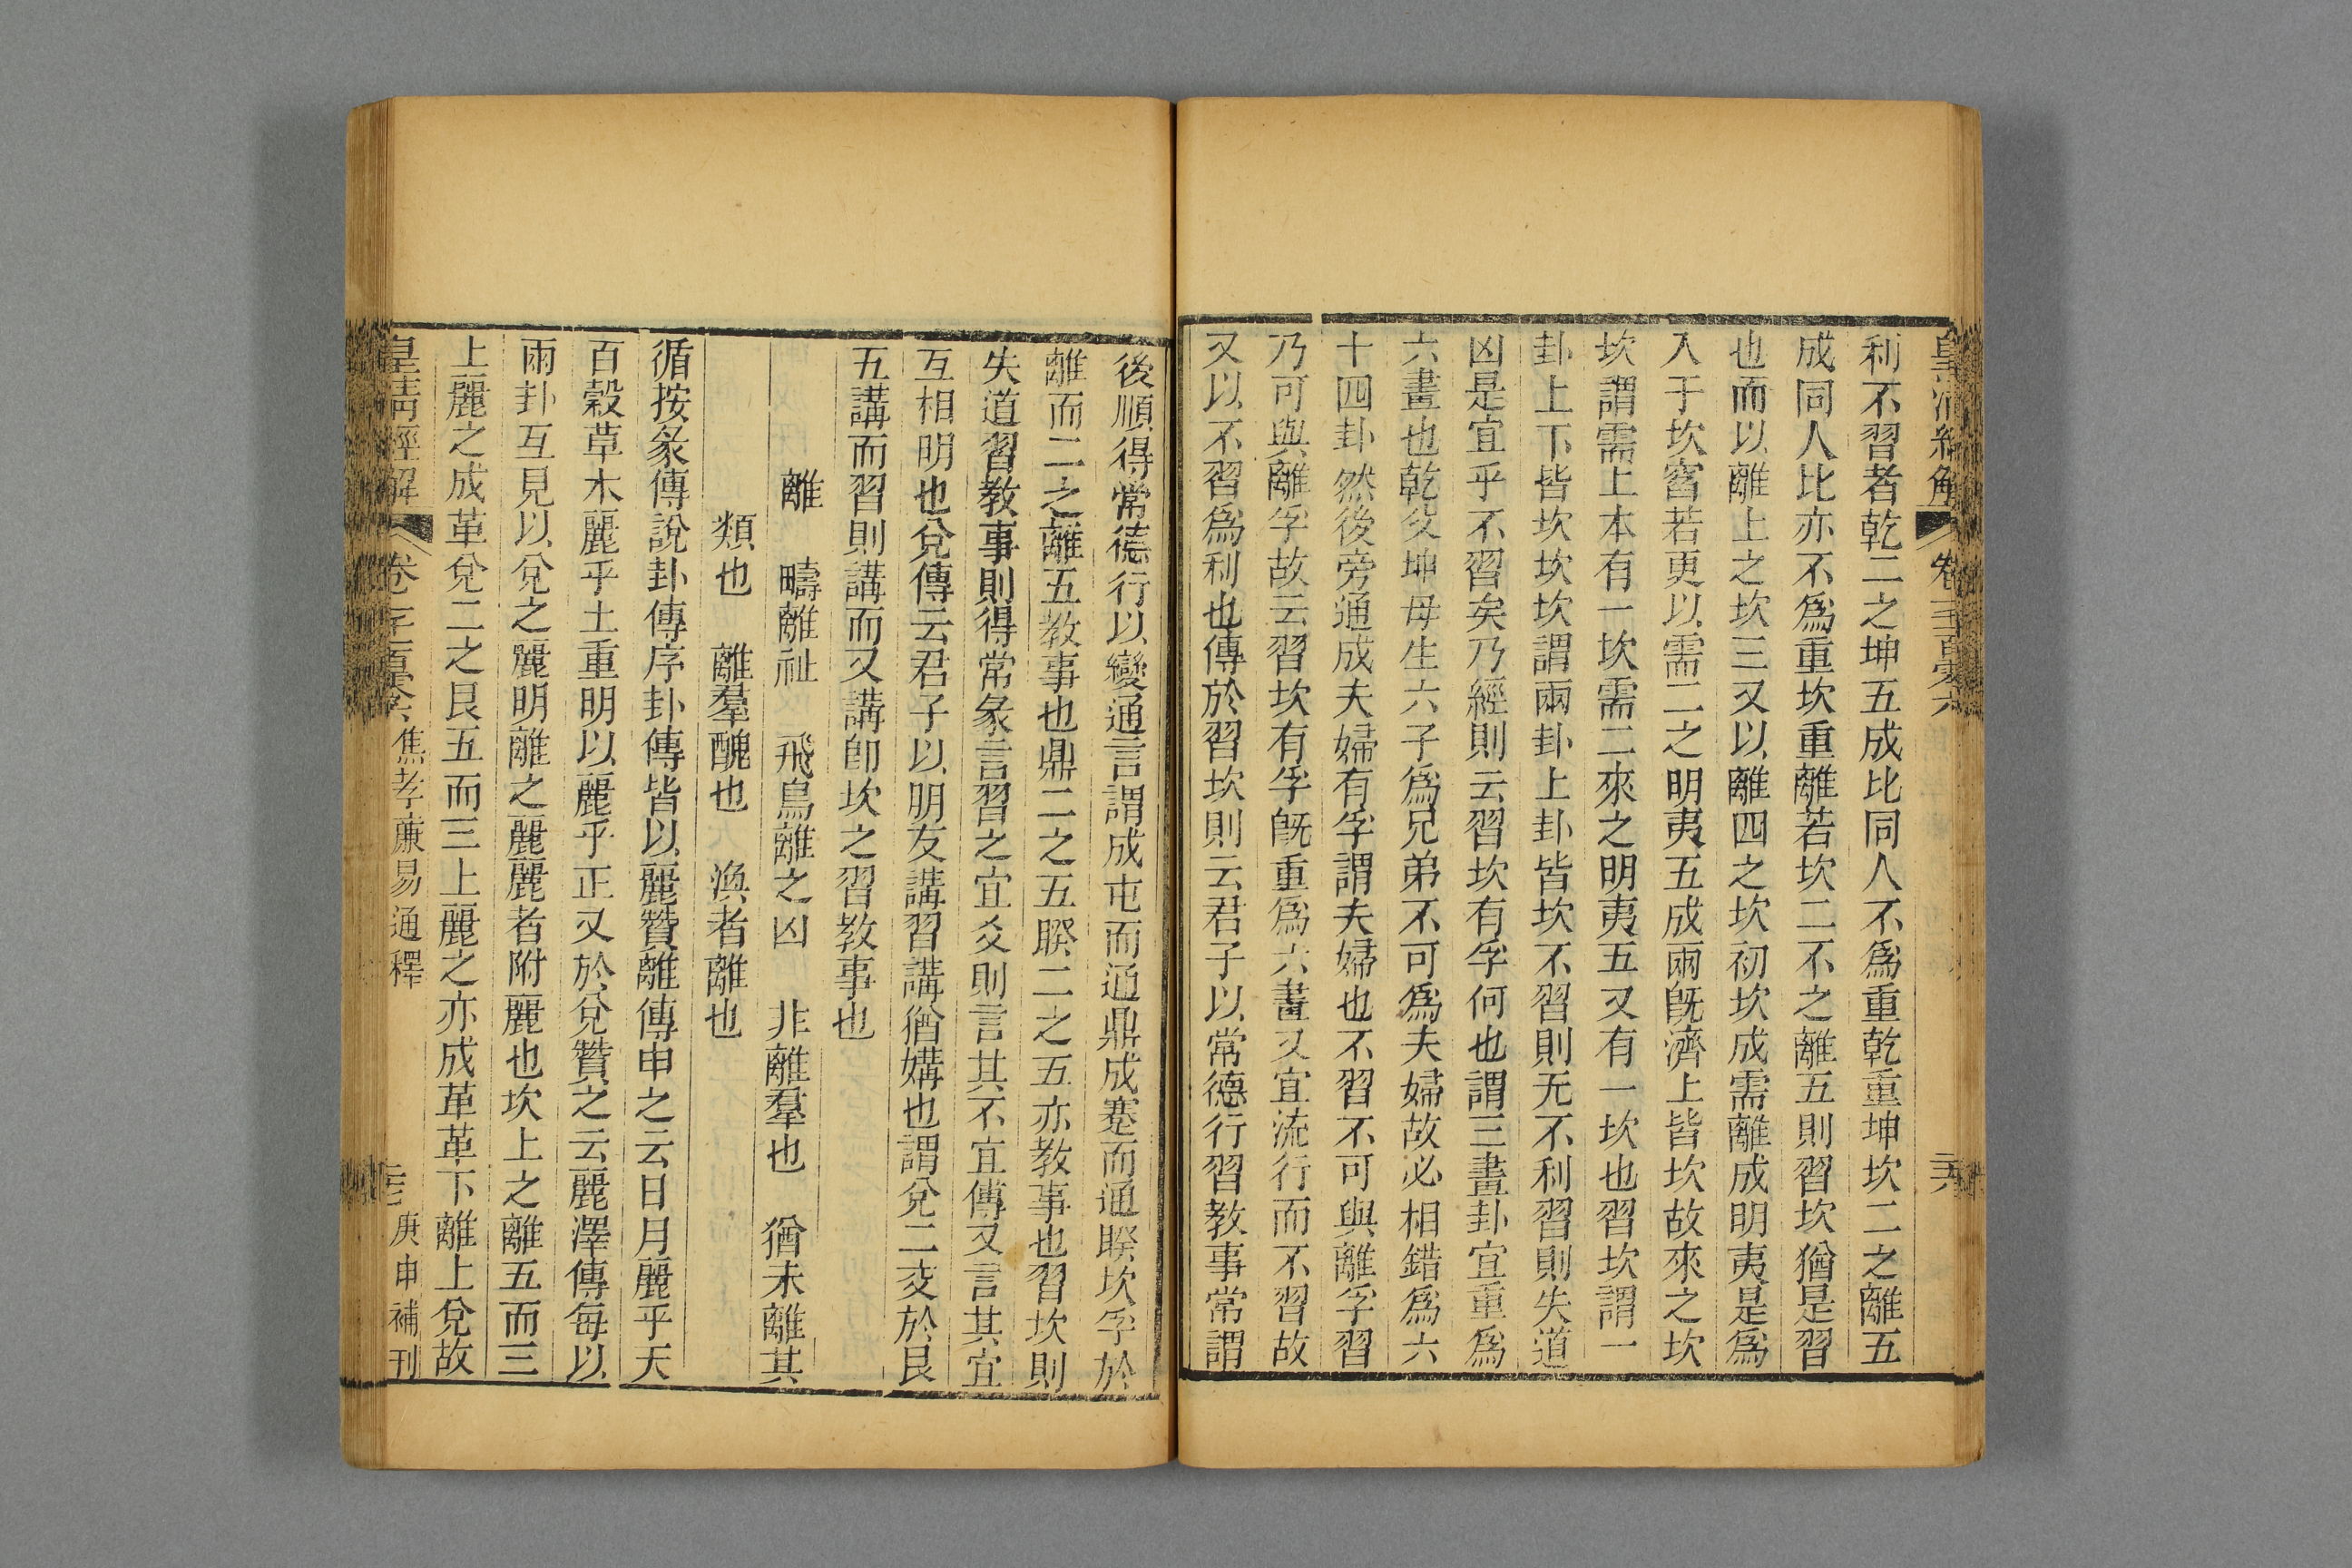 利不習者乾二之坤五成比同人不爲重乾重坤坎二之離五
成同人比亦不爲重坎重離若坎二不之離五則習坎猶是習
也而以離上之坎三又以離四之坎初坎成需離成明夷是爲
入于坎窞若更以需二之明夷五成兩旣濟上皆坎故來之坎
坎謂需上本有一坎需二來之明夷五又有一坎也習坎謂一
卦上下皆坎坎坎謂兩卦上卦皆坎不習則无不利習則失道
凶是宜乎不習矣乃經則云習坎有孚何也謂三畫卦宜重爲
六畫也乾父坤母生六子爲兄弟不可爲夫婦故必相錯爲六
十四卦然後旁通成夫婦有孚謂夫婦也不習不可與離孚習
乃可與離孚故云習坎有孚旣重爲六畫又宜流行而不習故
又以不習爲利也傳於習坎則云君子以常德行習教事常謂
後順得常德行以變通言謂成屯而通鼎成蹇而通睽坎孚於
離而二之離五教事也鼎二之五睽二之五亦教事也習坎則
失道習教事則得常彖言習之宜爻則言其不宜傳又言其宜
互相明也兌傳云君子以朋友講習講猶媾也謂兌二交於艮
五講而習則講而又講卽坎之習教事也
離　疇離祉　飛鳥離之凶　非離羣也　猶未離其
類也　離羣醜也　渙者離也
循按彖傳說卦傳序卦傳皆以麗贊離傳申之云日月麗乎天
百穀草木麗乎土重明以麗乎正又於兌贊之云麗澤傳每以
兩卦互見以兌之麗明離之麗麗者附麗也坎上之離五而三
上麗之成革兌二之艮五而三上麗之亦成革革下離上兌故
皇清經解　卷　　焦孝廉易通釋　　庚申補刊